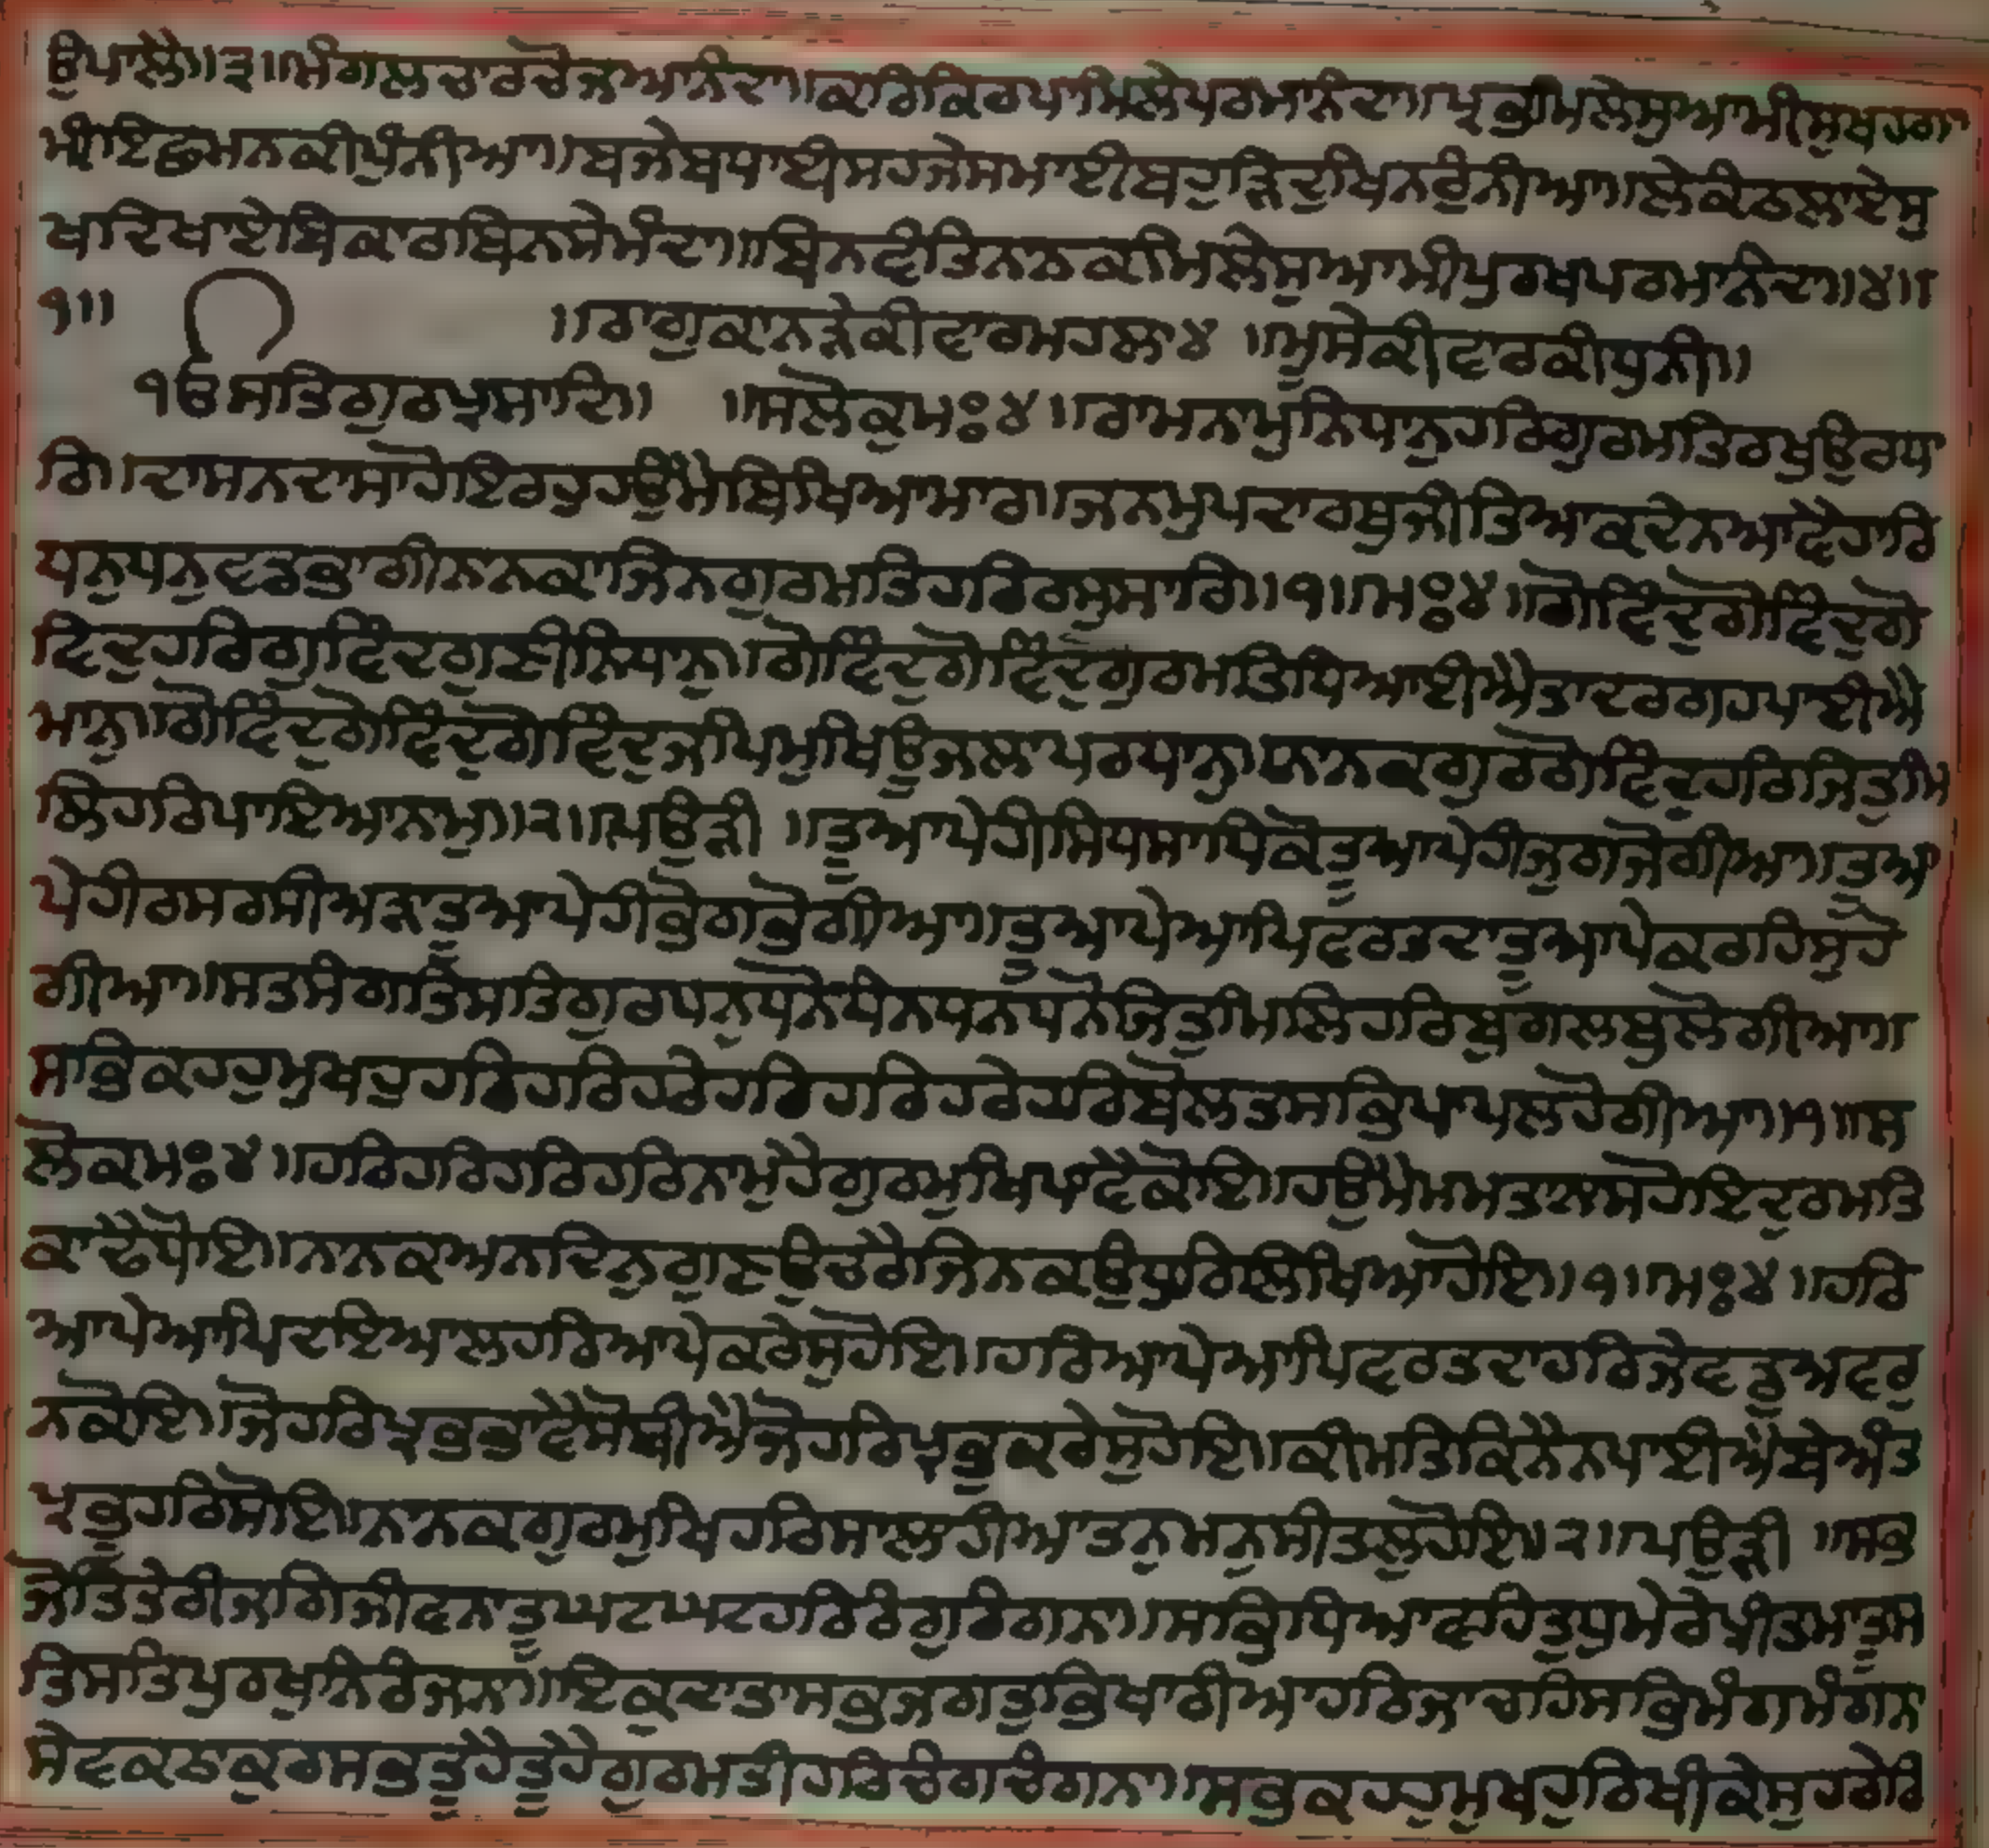 ਉਪਾਲੈ॥੩॥ਮੰਗਲਚਾਰਚੋਜਆਨੰਦਾ॥ਕਰਿਕਿਰਪਾਮਿਲੇਪਰਮਾਨੰਦਾ॥ਪ੍ਰਭਮਿਲੇਸੁਆਮੀਸੁਖਹਗਾ
ਮੀਇਛਮਨਕੀਪੁੰਨੀਆ॥ਬਜੀਬਧਾਈਸਹਜੇਸਮਾਈਬਹੁੜਿਦੂਖਿਨਰੁੰਨੀਆ॥ਲੇਕੰਠਿਲਾਏਸੁ
ਖਦਿਖਾਏਬਿਕਾਰਬਿਨਸੇਮੰਦਾ॥ਬਿਨਵੰਤਿਨਾਨਕਮਿਲੇਸੁਆਮੀਪੁਰਖਪਰਮਾਨੰਦਾ॥੪॥
੧॥ ॥ਰਾਗੁਕਾਨੜੇਕੀਵਾਰਮਹਲਾ੪ ॥ਮੂਸੇਕੀਵਾਰਕੀਧੁਨੀ॥
੧ਓਸਤਿਗੁਰਪ੍ਰਸਾਦਿ॥ ॥ਸਲੋਕੁਮਃ੪॥ਰਾਮਨਾਮੁਨਿਧਾਨੁਹਰਿਗੁਰਮਤਿਰਖੁਉਰਧਾ
ਰਿ॥ਦਾਸਨਦਾਸਾਹੋਇਰਹੁਹਉਮੈਬਿਖਿਆਮਾਰਿ॥ਜਨਮੁਪਦਾਰਥੁਜੀਤਿਆਕਦੇਨਆਵੈਹਾਰਿ
ਧਨੁਧਨੁਵਡਭਾਗੀਨਾਨਕਾਜਿਨਗੁਰਮਤਿਹਰਿਰਸੁਸਾਰਿ॥੧॥ਮਃ੪॥ਗੋਵਿੰਦੁਗੋਵਿਦੁਗੋ
ਵਿਦੁਹਰਿਗੁਵਿੰਦਗੁਣੀਨਿਧਾਨੁ॥ਗੋਵਿੰਦੁਗੋਵਿੰਦੁਗੁਰਮਤਿਧਿਆਈਐਤਾਦਰਗਹਪਾਈਐ
ਮਾਨੁ॥ਗੋਵਿੰਦੁਗੋਵਿੰਦੁਗੋਵਿੰਦੁਜਪਿਮੁਖਿਊਜਲਾਪਰਧਾਨੁ॥ਨਾਨਕਗੁਰੁਗੋਵਿੰਦੁਹਰਿਜਿਤੁਮਿ
ਲਿਹਰਿਪਾਇਆਨਾਮੁ॥੨॥ਪਉੜੀ ॥ਤੂਆਪੇਹੀਸਿਧਸਾਧਿਕੋਤੂਆਪੇਹੀਜੁਗਜੋਗੀਆ॥ਤੂਆ
ਪੇਹੀਰਸਰਸੀਅੜਾਤੂਆਪੇਹੀਭੋਗਭੋਗੀਆ॥ਤੂਆਪੇਆਪਿਵਰਤਦਾਤੂਆਪੇਕਰਹਿਸੁਹੋ
ਗੀਆ॥ਸਤਸੰਗਤਿਸਤਿਗੁਰਧਨੁਧਨੋਧੰਨਧੰਨਧਨੋਜਿਤੁਮਿਲਿਹਰਿਬੁਗਲਬੁਲੋਗੀਆ॥
ਸਭਿਕਹਹੁਮੁਖਹੁਹਰਿਹਰਿਹਰੇਹਰਿਹਰਿਹਰੇਹਰਿਬੋਲਤਸਭਿਪਾਪਲਹੋਗੀਆ॥੧॥ਸ
ਲੋਕਮਃ੪॥ਹਰਿਹਰਿਹਰਿਹਰਿਨਾਮੁਹੈਗੁਰਮੁਖਿਪਾਵੈਕੋਇ॥ਹਉਮੈਮਮਤਾਨਾਸੁਹੋਇਦੁਰਮਤਿ
ਕਢੈਧੋਇ॥ਨਾਨਕਅਨਦਿਨੁਗੁਣਉਚਰੈਜਿਨਕਉਧੁਰਿਲਿਖਿਆਹੋਇ॥੧॥ਮਃ੪॥ਹਰਿ
ਆਪੇਆਪਿਦਇਆਲੁਹਰਿਆਪੇਕਰੇਸੁਹੋਇ॥ਹਰਿਆਪੇਆਪਿਵਰਤਦਾਹਰਿਜੇਵਡੁਅਵਰੁ
ਨਕੋਇ॥ਜੋਹਰਿਪ੍ਰਭਭਾਵੈਸੋਥੀਐਜੋਹਰਿਪ੍ਰਭੁਕਰੇਸੁਹੋਇ॥ਕੀਮਤਿਕਿਨੈਨਪਾਈਐਬੇਅੰਤ
ਪ੍ਰਭੂਹਰਿਸੋਇ॥ਨਾਨਕਗੁਰਮੁਖਿਹਰਿਸਾਲਾਹੀਆਤਨੁਮਨੁਸੀਤਲੁਹੋਇ॥੨॥ਪਉੜੀ ॥ਸਭ
ਜੋਤਿਤੇਰੀਜਗਿਜੀਵਨਾਤੂਘਟਘਟਹਰਿਰੰਗੁਰੰਗਨਾ॥ਸਭਿਧਿਆਵਹਿਤੁਧੁਮੇਰੇਪ੍ਰੀਤਮਾਤੂਸ
ਤਿਸਤਿਪੁਰਖੁਨਿਰੰਜਨਾ॥ਇਕੁਦਾਤਾਸਭੁਜਗਤੁਭਿਖਾਰੀਆਹਰਿਜਾਚਹਿਸਭਿਮੰਗਮੰਗਨਾ
ਸੇਵਕਠਾਕੁਰਸਭੁਤੂਹੈਤੂਹੈਗੁਰਮਤੀਹਰਿਚੰਗਚੰਗਨਾ॥ਸਭੁਕਹਹੁਮੁਖਹੁਰਿਖੀਕੇਸੁਹਰੇਰਿ